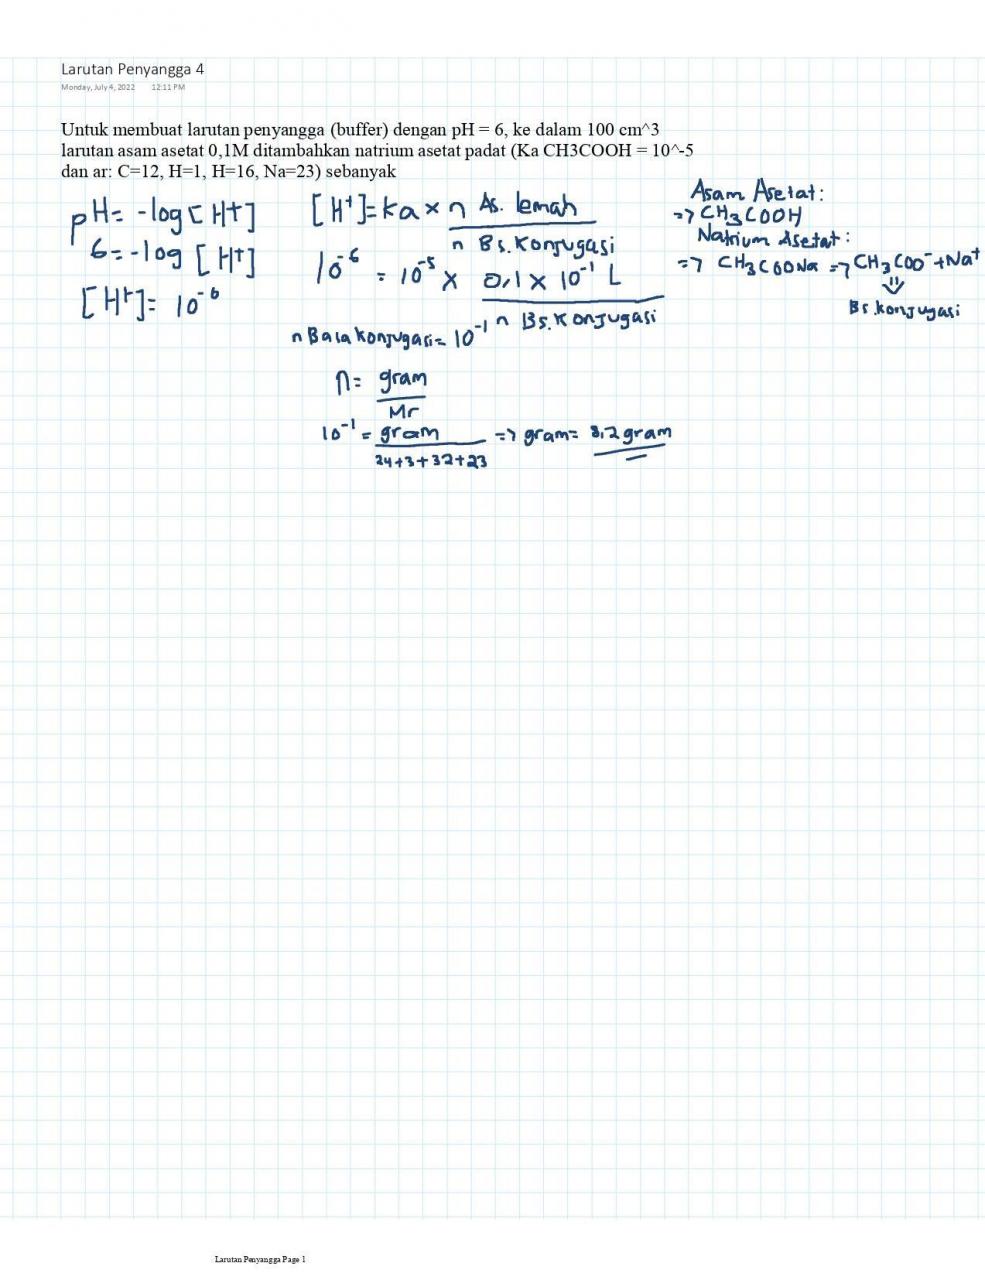 Larutan Penyangga 4
Monday, July 4, 2022 12:11 PM
Untuk membuat larutan penyangga (buffer) dengan pH = 6, ke dalam 100 cm^3
larutan asam asetat 0,1M ditambahkan natrium asetat padat (Ka CH3COOH = 10^-5
dan ar: C=12, H=1, H=16, Na=23) sebanyak
pH= -log[H+]
6= -log [H+]
[H+]= 10⁻⁶
[H+]=ka x n As. lemah
n Bs.Konjugasi
10⁻⁶ = 10⁻⁵ x 0,1 x 10⁻¹ L
n Bs.Konjugasi
n Basa Konjugasi= 10⁻¹
n= gram
Mr
10⁻¹ = gram => gram= 8,2 gram
24+3+32+23
Asam Asetat:
=> CH₃COOH
Natrium Asetat:
=> CH₃COONa => CH₃COO⁻+Na⁺
Bs.konjugasi
Larutan Penyangga Page 1